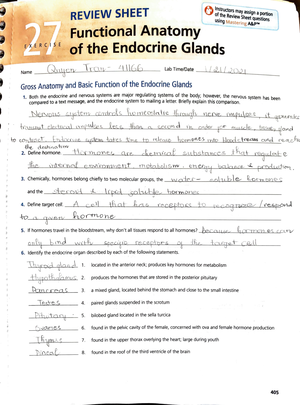 Instructors may assign a portion
of the Review Sheet questions
using Mastering A&P™
REVIEW SHEET
EXERCISE
27
Functional Anatomy
of the Endocrine Glands
Name
Lab Time/Date
Gross Anatomy and Basic Function of the Endocrine Glands
1. Both the endocrine and nervous systems are major regulating systems of the body; however, the nervous system has been
compared to a text message, and the endocrine system to mailing a letter. Briefly explain this comparison.
Nervous system controls homeostasis through nerve impulses. It generates
transmit electrical impulses less than a second in order for muscle
endocrine system takes time to release hormones into blood and reach
the destination
2. Define hormone. Hormones are chemical substances that regulate
the internal environment, metabolism, energy balance & production.
3. Chemically, hormones belong chiefly to two molecular groups, the water-soluble hormones
and the steroid & lipid soluble hormone
4. Define target cell. A cell that has receptors to recognize/respond
to a given hormone
5. If hormones travel in the bloodstream, why don't all tissues respond to all hormones? because hormones can
only bind with specific receptors of the target cell
6. Identify the endocrine organ described by each of the following statements.
Thyroid gland 1. located in the anterior neck; produces key hormones for metabolism
Hypothalamus 2. produces the hormones that are stored in the posterior pituitary
Pancreas 3. a mixed gland, located behind the stomach and close to the small intestine
Testes 4. paired glands suspended in the scrotum
Pituitary 5. bilobed gland located in the sella turcica
6. found in the pelvic cavity of the female, concerned with ova and female hormone production
Thymus 7. found in the upper thorax overlying the heart; large during youth
Pineal 8. found in the roof of the third ventricle of the brain
405